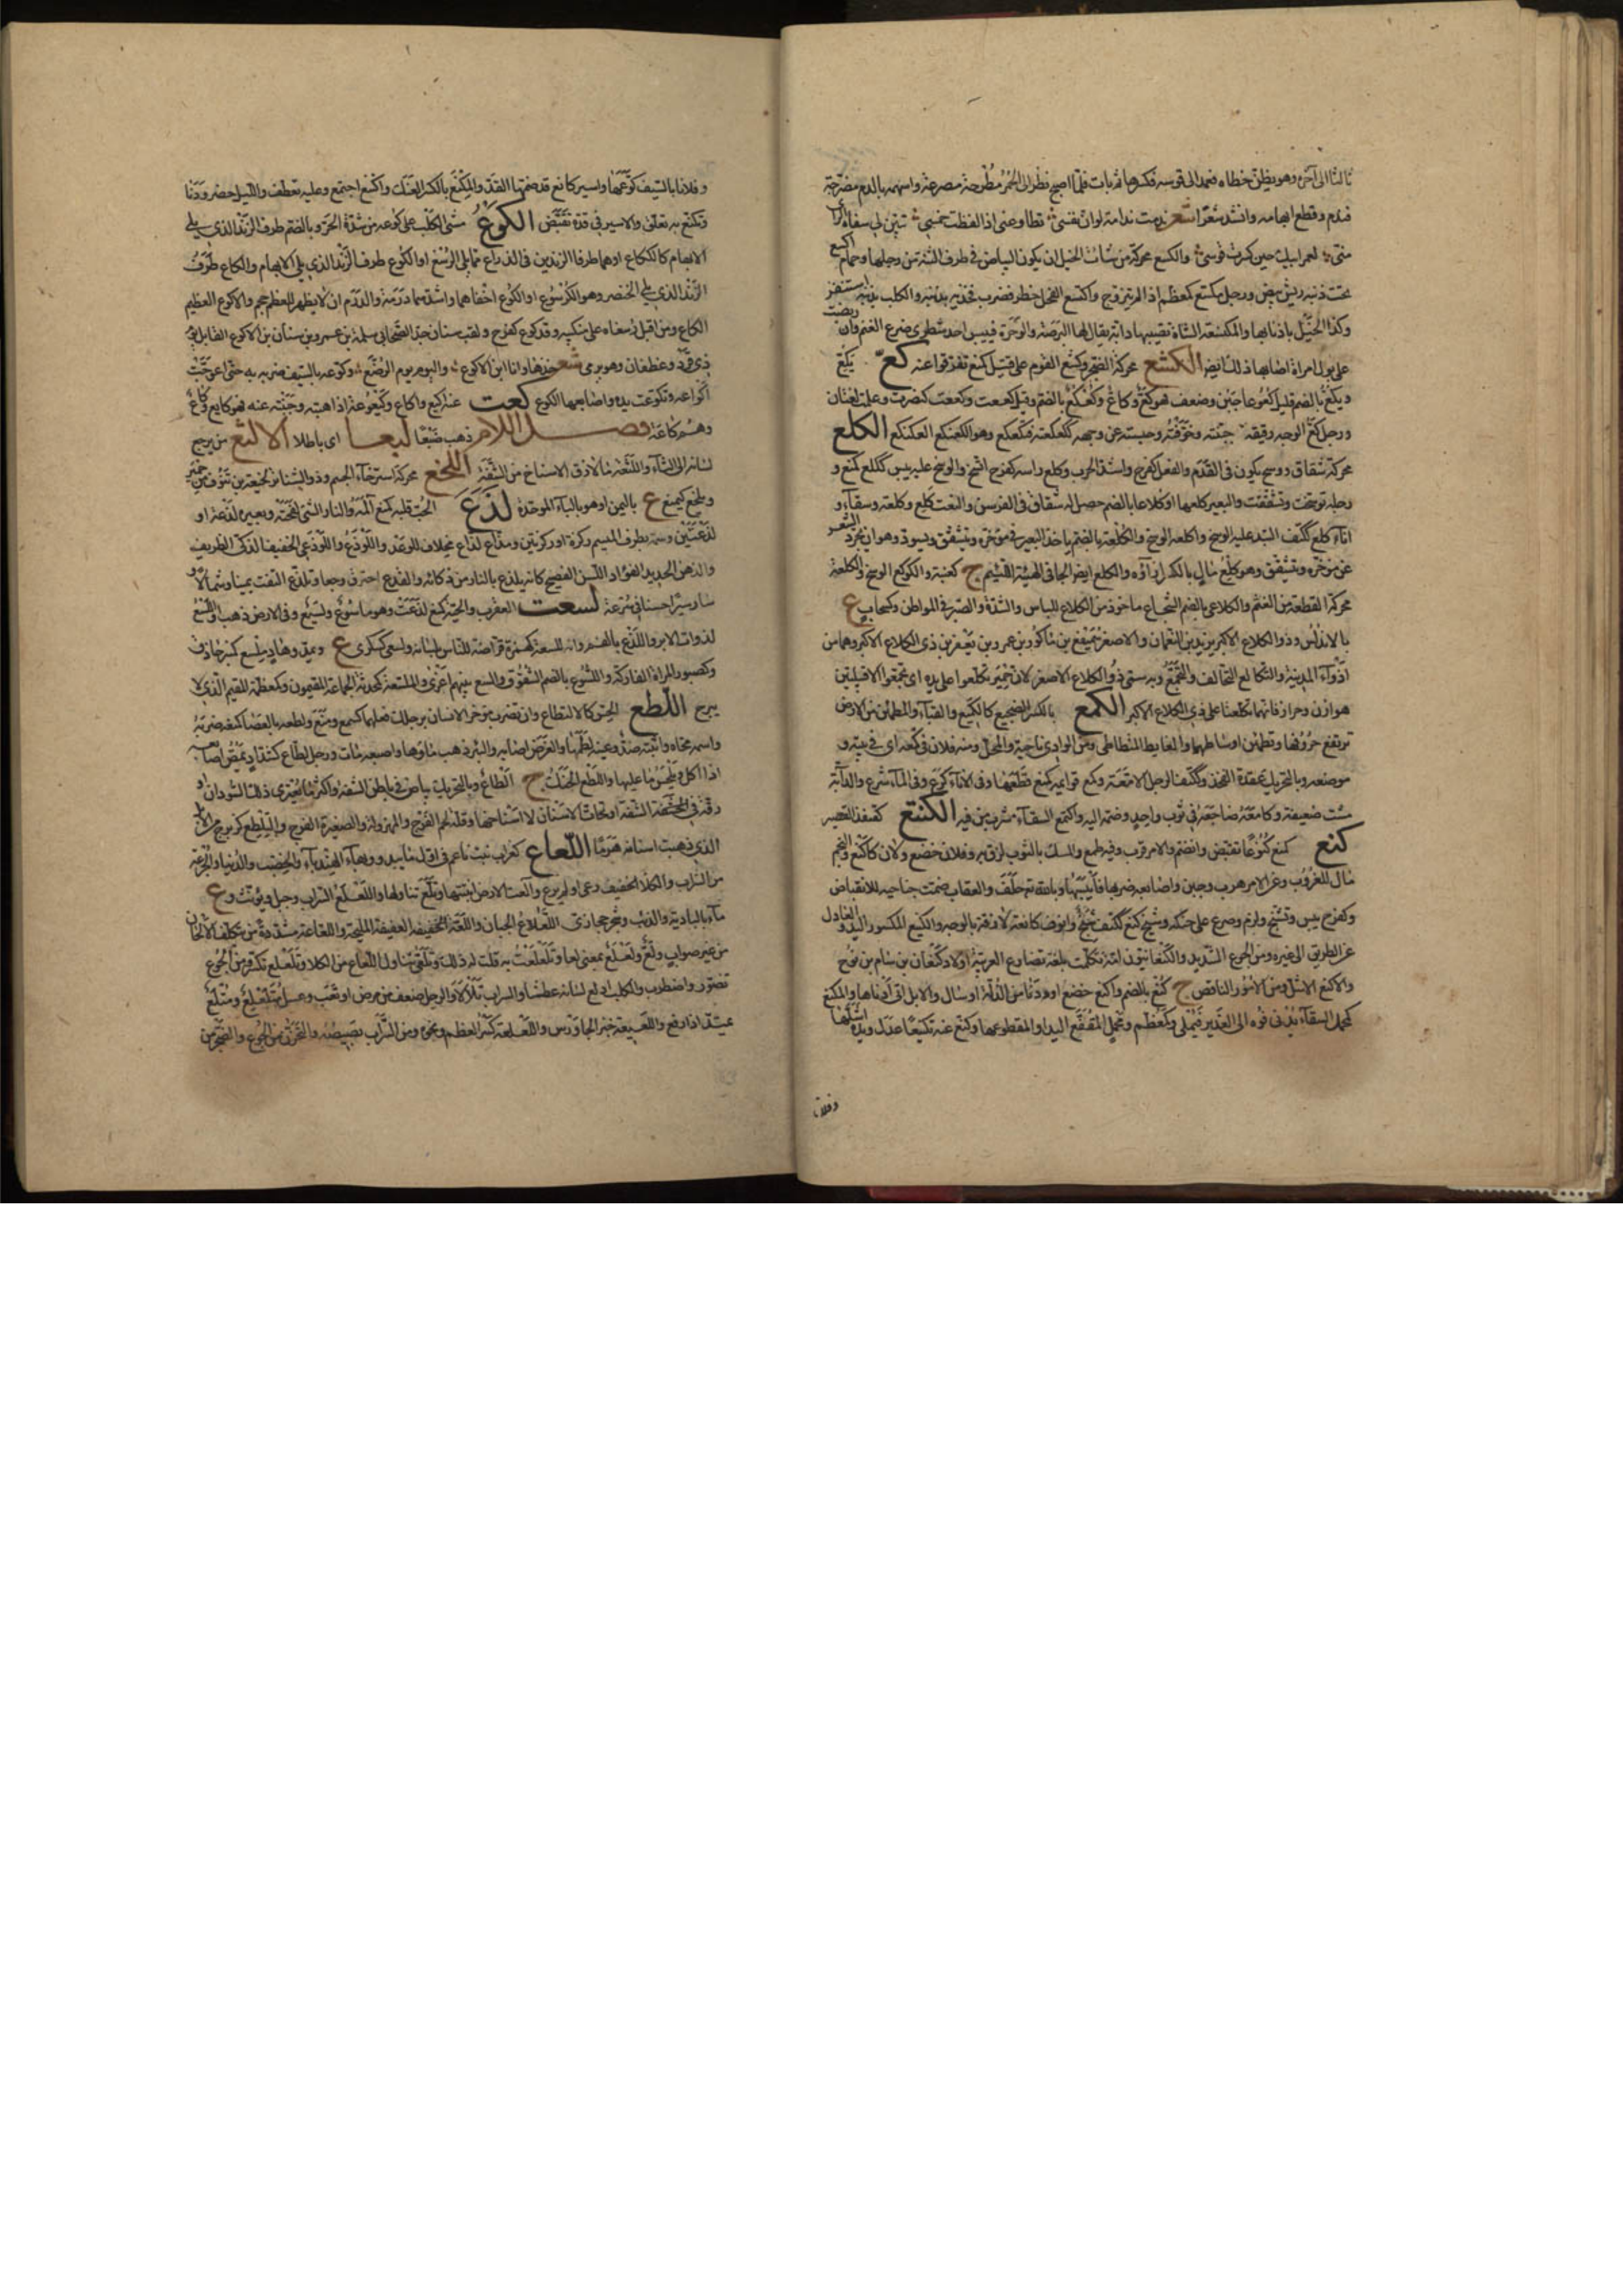 ثالثا الى آخره وهو يظن خطاه فعمد الى قوسه فكسرها ثم بات فلما اصبح نظر الى الحمر مطرحة مصرعة واسهمه بالدم مضرجة
فندم وقطع ابهامه وانشد شعرا ندمت ندامة لو ان نفسى تطاوعنى اذا لقطعت خمسى تبين لى سفاه الراى
منى لعمر ابيك حين كسرت قوسى والكسع محركة من شيات الخيل ان يكون البياض فى طرف الثنة من رجلها وحمام اكسع
تحت ذنبه ريش بيض ورجل مكسع كمعظم اذا لم يتزوج واكتسع الفحل خطر فضرب فخذيه بذنبه والكلب بذنبه استثفر
وكذا الخيل باذنابها والمكسعة الشاة تصيبها دابة يقال لها البرصة والوحرة فييبس احد شطرى ضرع الغنم وان ربضت
على بول امراة اصابها ذلك ايضا الكشع محركة الضجر وكشع القوم على قتيل كمنع تفرقوا عنه كع يكع
ويكع بالضم قليل كعوعا جبن وضعف فهو كع وكاع وكعكع بالضم وقيل كععت وكععت كضربت وعلمت لغتان
ورجل كع الوجه رقيقه جبنته وخوفته وحبسته عن وجهه ككعكعته فتكعكع وهو الكعنكع العكنكع الكلع
محركة شقاق ووسخ يكون فى القدم والفعل كفرح واشد الجرب وكلع راسه كفرح اتسخ والوسخ عليه يبس ككلع كمنع و
رجله توسخت وتشققت والبعير كلعها او كلاعا بالضم حصل له شقاق فى الفرسن والنعت كلع وكلعة وسقاء و
اناء كلع ككتف التبد عليه الوسخ واكلعه الوسخ والكلعة بالضم ياخذ البعير فى مؤخره ويتشقق ويسود وهو ان يجرد الشعر
عن مؤخره وتشقق وهو كلع مال بالكسر ازاؤه والكلع ايضا الجافى الهيئة اللئيم ج كعنبة والكوكع الوسخ والكلعة
محركة القطعة من الغنم والكلاعى بالضم الشجاع ماخوذ من الكلاع للباس والشدة والصبر فى المواطن وكسحاب ع
بالاندلس وذو الكلاع الاكبر يزيد بن النعمان والاصغر سميفع بن ناكور بن عمرو بن يعفر بن ذى الكلاع الاكبر وهما من
اذواء اليمن والتكلع التحالف والتجمع وبه سمى ذو الكلاع الاصغر لان حمير تكلعوا على يده اى تجمعوا الا قبيلتين
هوازن وحراز فانهما تكلعتا على ذى الكلاع الاكبر الكمع بالكسر الضجيع كالكميع والقباء والمطمئن من الارض
ترتفع حروفها وتطمئن اوساطها والغايط المتطامن ومن الوادى ناحيته والمحل ومنه فلان فى كمعه اى فى بيته و
موضعه وبالتحريك عقدة الفخذ وككتف الرجل الامعة وكمع قوايمه كمنع قطعها وفى الاناء كرع وفى الماء شرع والدابة
مشت ضعيفة وكامعه ضاجعه فى ثوب واحد وضمه اليه واكتمع السقاء شرب من فيه الكنتع كقنفذ القصير
كنع كنع كنوعا تقبض وانضم والامر قرب وفيه طمع والمسك بالثوب لزق به وفلان خضع ولان كاكنع والنجم
مال للغروب وعن الامر هرب وجبن واصابعه ضربها فايبسها وبالله تع حلف والعقاب ضمت جناحيه للانقضاض
وكفرح يبس وتشنج ولزم وصرع على حنكه وشيخ كنع ككتف شنج وانوف كانعة لازقة بالوجه والكنيع المكسور اليد والعادل
عن الطريق الى غيره ومن الجوع الشديد والكنعانيون امة تكلمت بلغة تضارع العربية اولاد كنعان بن سام بن نوح
والاكنع الاشل ومن الامور الناقص ج كنع بالضم واكنع خضع او ودنا من الذلة او سال والابل الى ادناها والمكنع
كمجمل السقاء يدنى فوه الى الغدير فيملى وكمعظم ومجمل المقفع اليد او المقطوعها وكنع عنه تكنيعا عدل ويده اشلها
وفلانا
وفلانا بالسيف كوعها واسير كانع قد ضمها القد والمكنع بالكسر العنك واكتنع اجتمع وعليه تعطف والليل حضر ودنا
وتكنع به تعلق والاسير فى قده تقبض الكوع مشى الكلب على كوعه من شدة الحر وبالضم طرف الزند الذى يلى
الابهام كالكاع او هما طرفا الزندين فى الذراع مما يلى الرسغ او الكوع طرف الزند الذى يلى الابهام والكاع طرف
الزند الذى يلى الخنصر وهو الكرسوع او الكوع اخفاهما واشدهما درمة والدرم ان لا يظهر للعظم حجم والاكوع العظيم
الكاع ومن اقبل رسغاه على منكبيه وقد كوع كفرح ولقب سنان جد الصحابى سلمة بن عمرو بن سنان بن الاكوع القايل يوم
ذى قرد وغطفان وهو يرمى شعر خذها وانا ابن الاكوع واليوم يوم الرضع وكوعه بالسيف ضربه به حتى اعوجت
اكواعه وتكوعت يده واصابعها الكوع كعت عنه اكيع واكاع وكيعوعة اذا هبته وجبنت عنه فهو كايع وكاع
وهم كاعة فصل اللام ذهب ضبعا لبعا اى باطلا الالثع من يرجع
لسانه الى الثاء واللثعة ما لازق الاسناخ من الشفة اللخع محركة استرخاء الجسم وذو الشناتر لخيعة بن ينوف من حمير
ويلخع كيمنع ع باليمن او هو بالباء الموحدة لذع الحب قلبه كمنع آلمه والنار الشى لفحته وبعيره لذعة او
لذعتين وسمه بطرف الميسم ركزة او ركزتين ومذاع لذاع مخلاف للوعد واللوذع واللوذعى الخفيف الذكى الظريف
والذهن الحديد الفؤاد اللسن الفصيح كانه يلذع بالنار من ذكائه والتذع احترق وجعا وتلذع التفت يمينا وشمالا و
سار سيرا حسنا فى سرعة لسعت العقرب والحية كمنع لذغت وهو ملسوع ولسيع وفى الارض ذهب او اللسع
لذوات الابر واللذع بالفم وانه للسعة كهمزة قراصة للناس بلسانه ولسعى كسكرى ع ويمد وهاد ملسع كمنبر حاذق
وكصبور المراة الفاركة واللسوع بالضم الشقوق والسع بينهم اغرى والملسعة كمحدثة الجماعة المقيمون وكمعظمة المقيم الذى لا
يبرح اللطع الحس كالالتطاع وان تضرب مؤخر الانسان برجلك فعلها كسمع ومنع ولطعه بالعصا كمنعه ضربه
واسمه محاه واثبته ضد وعينه لطمها والغرض اصابه والبئر ذهب ماؤها واصبعه مات ورجل لطاع كشداد يمص اصابعه
اذا اكل ويلحس ما عليها واللطع الحنك ج الطاع وبالتحريك بياض فى باطن الشفة واكثر ما يعترى ذلك السودان و
رقة فى الشفة او تحات الاسنان الا اسناخها وقلة لحم الفرج والمهزولة والصغيرة الفرج والتى
الذى ذهبت اسنانه هرما اللعاع كغراب نبت ناعم فى اول ما يبدو وبهاء الهندباء والخصب والدنيا والجرعة
من الشراب والكلا الخفيف رعى او لم يرع والعت الارض انبتتها وتلعى تناولها واللعلع السراب وجبل ويؤنث وع
ماء بالبادية والذئب وشجر حجازى اللعلاع الجبان واللعة الخفيفة العفيفة المليحة واللعاعة مشددة من يتكلف الالحان
من غير صواب ولع ولعلع بمعنى لعا وتلعلعت به قلت له ذلك وتلعى تناول اللعاع من الكلا وتلعلع تكسر من الجوع
تضور واضطرب والكلب ادلع لسانه عطشا والسراب تلالا والرجل ضعف من مرض او تعب وعسل متلعلع ومتلع
يمتد اذا رفع واللعيعة خبز الجاورس واللعلعة كسر العظم ونحوه ومن السراب بصيصه والتحزن من الجوع والضجر من